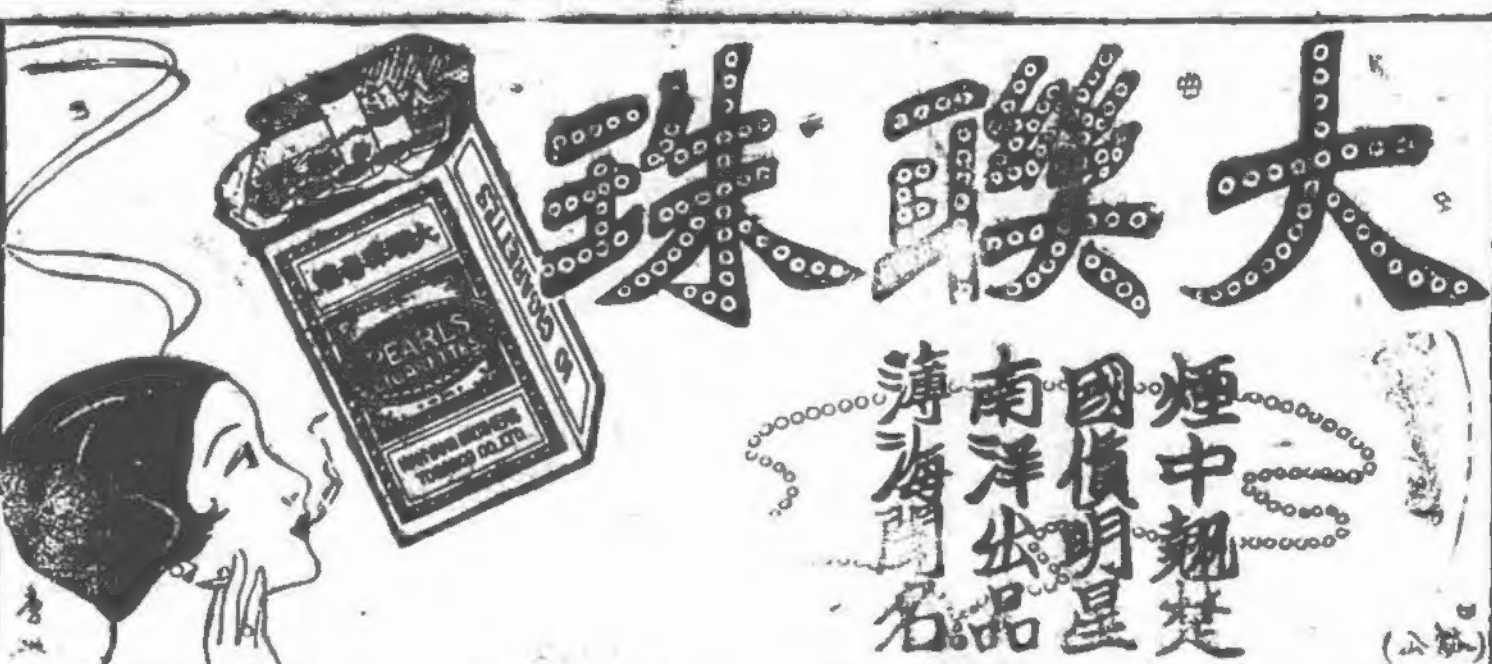 大聯珠
煙中翹楚
國貨明星
南洋出品
薄海聞名
PEARLS
CIGARETTES
NANYANG BROTHERS
TOBACCO CO. LTD.
10 CIGARETTES